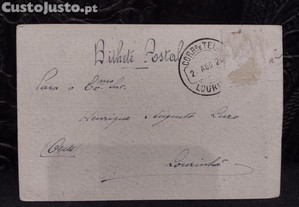 CustoJusto.pt
Bilhete Postal
CORREIO TEL
2 AGO 2
LOUR
Para o Exmo Snr.
Henrique Augusto Luro
Oeste
Lourinhã